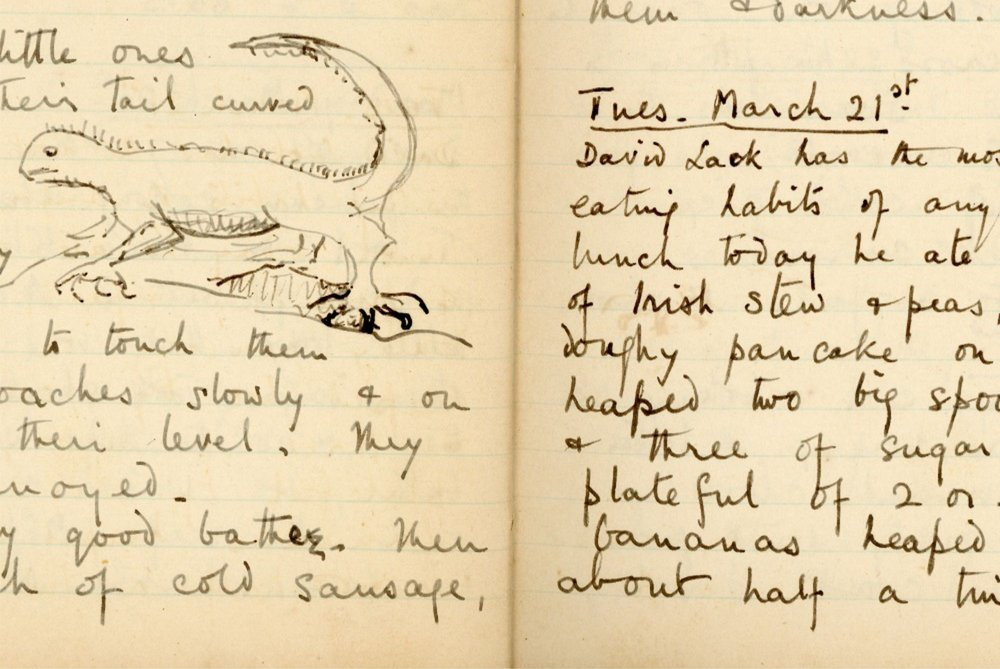 little ones
their tail curved
y
to touch them
oaches slowly & on
their level. They
nnoyed -
y good bathe. Then
ch of cold sausage,
them & darkness.
Tues. March 21st.
David Lack has the mos
eating habits of any
lunch today he ate
of Irish stew & peas,
doughy pancake on
heaped two big spoo
& three of sugar
plateful of 2 or
bananas heaped
about half a tin